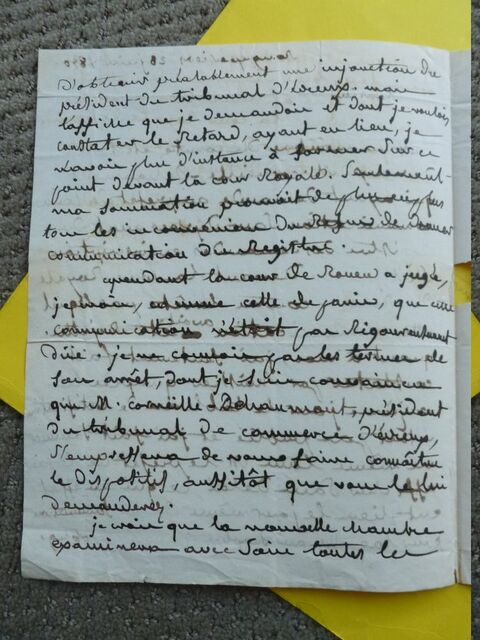 d'obtenir préalablement une injonction du
président du tribunal d'Evreux. mais
l'affiche que je demandois et dont je voulois
constater le retard, ayant eu lieu, je
n'avois plus d'instance à former sur ce
point devant la cour Royale. Seulement
ma sommation prouvoit de plus
tous les inconvéniens du de donner
communication du Registre.
quand la cour de Rouen a jugé,
je crois, comme celle de paris, que cette
communication n'étoit pas Rigoureusement
düe. je ne connois pas les termes de
Son arrêt, dont je suis convaincu
que M. corneille Dehaumont, président
du tribunal de commerce d'évreux,
S'empressera de vous faire connoître
le dispositif, aussitôt que vous le lui
demanderez.
je crois que la nouvelle chambre
examinera avec Soin toutes les